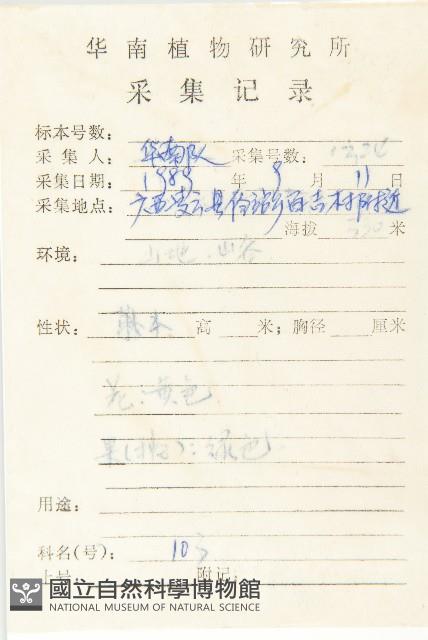 华南植物研究所
采集记录
标本号数:
采集人: 华南队 采集号数:
采集日期: 1989 年 9 月 11 日
采集地点: 广西凌云县伶站乡百吉村附近
海拔 米
环境: 山地、山谷
性状: 灌木 高 米; 胸径 厘米
花: 黄色
果(子): 绿色
用途:
科名(号): 103
附记:
國立自然科學博物館
NATIONAL MUSEUM OF NATURAL SCIENCE